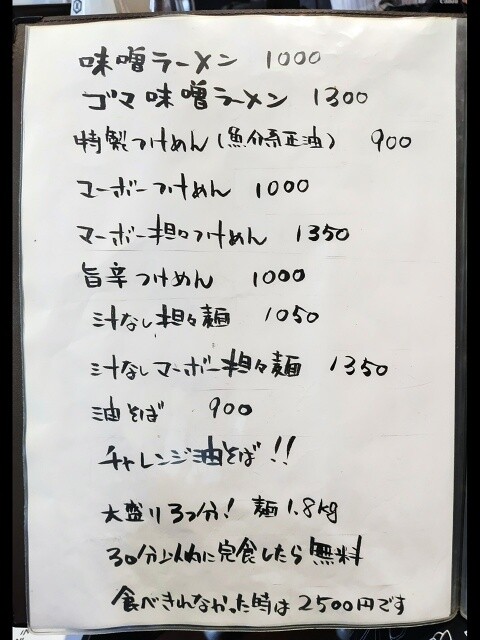 味噌ラーメン 1000
ゴマ味噌ラーメン 1300
特製つけめん(魚介系正油) 900
マーボーつけめん 1000
マーボー担々つけめん 1350
旨辛つけめん 1000
汁なし担々麺 1050
汁なしマーボー担々麺 1350
油そば 900
チャレンジ油そば!!
大盛り3つ分! 麺1.8kg
30分以内に完食したら無料
食べきれなかった時は2500円です